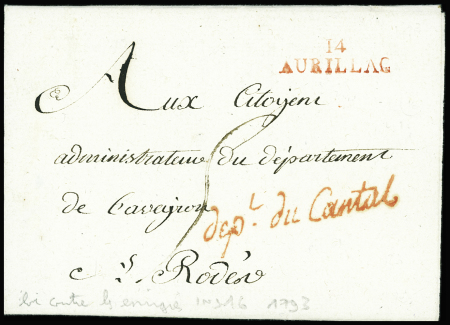 14
AURILLAC
Aux Citoyens
administrateurs du département
de l'aveyron
dep.t du Cantal
à Rodés
loi contre les emigrés 1793